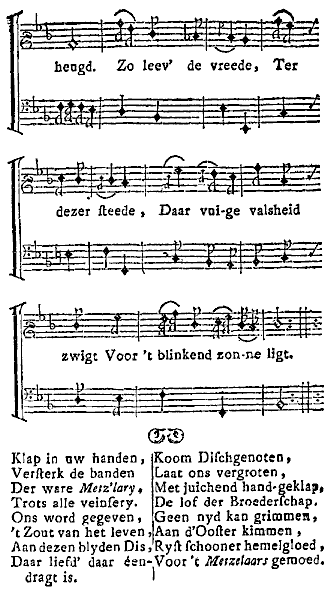 heugd. Zo leev' de vreede, Ter
dezer ſteede, Daar vui-ge valsheid
zwigt Voor 't blinkend zon-ne ligt.
Klap in uw handen,
Verſterk de banden
Der ware Metz'lary,
Trots alle veinſery.
Ons word gegeven,
't Zout van het leven,
Aan dezen blyden Dis,
Daar liefd' daar één-
dragt is.
Koom Diſchgenoten,
Laat ons vergroten,
Met juichend hand-geklap,
De lof der Broederſchap.
Geen nyd kan grimmen,
Aan d'Ooſter kimmen,
Ryſt ſchooner hemelgloed,
Voor 't Metzelaars gemoed.